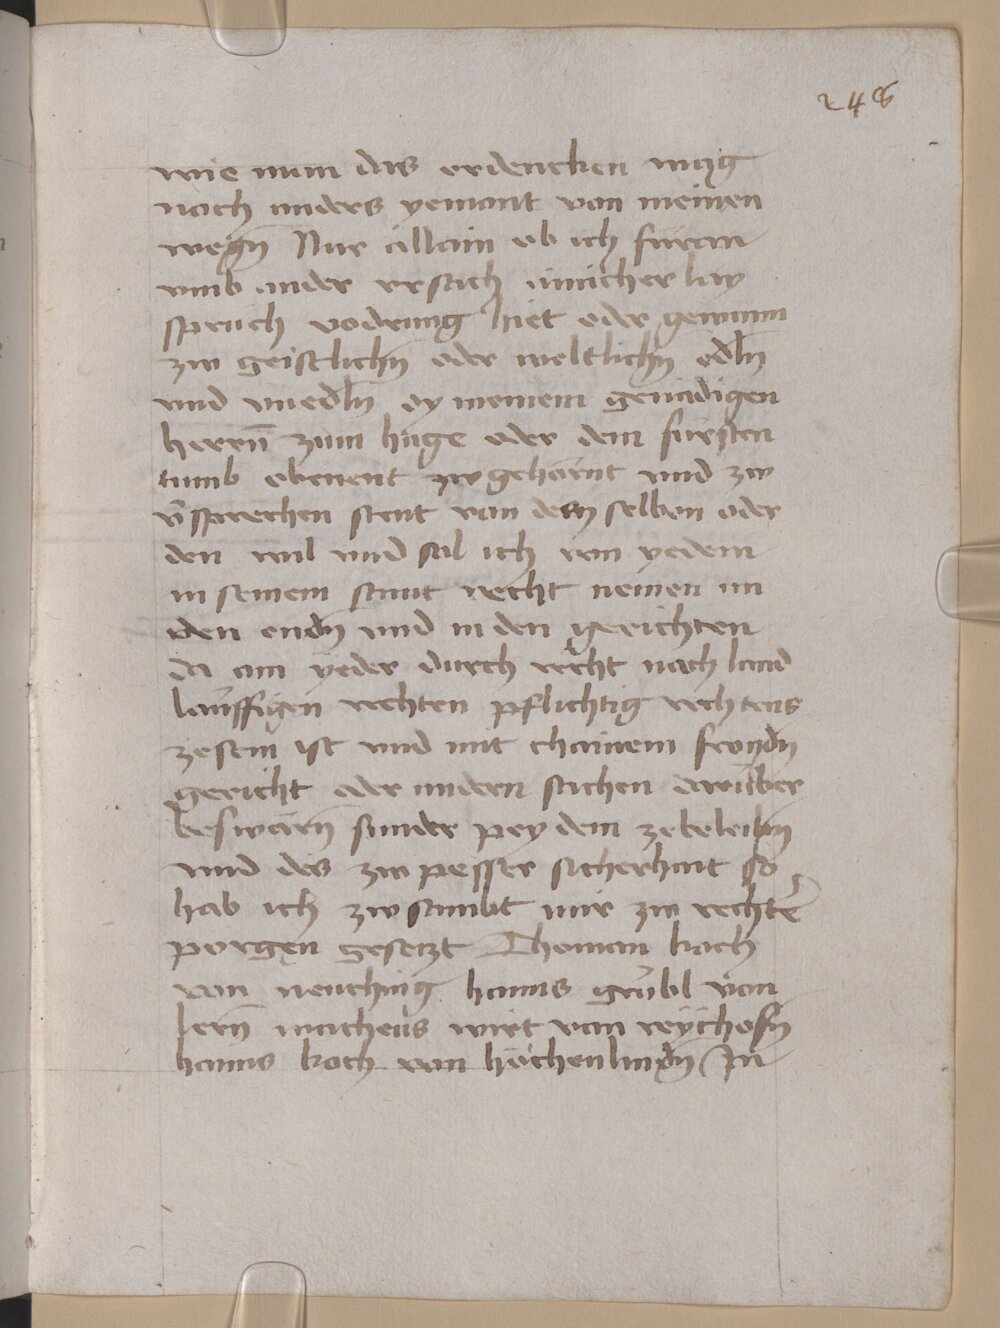 248
wie nim das erdencken mag
noch anders yemant von meinen
wegn Nur allain ob ich füran
umb ander ursach ainicherlay
spruch vodrung hiet oder gewunn
zw geistlichn oder weltlichn edln
und unedln dy meinem genadigen
herrn zum hage oder dem fursten
tumb obenent zw gehörnt und zw
v̄sprechen stent von demselbm oder
den wil und sol ich von yedem
in seinem stant recht nemen im
den endn und in den gerichten
da ain yeder durch recht nach land
laüffigen rechten pflichtig rechtens
zesein ist und mit chainem fromdn
gericht oder andern sachen darüber
beswarn sunder pey dem zebeleibm
und des zw pesser sicherhait so
hab ich zw sambt mir zw rechtē
porgen gesetzt Thoman koch
von neuching hanns grübl von
lern matheüs wirt von reÿthofn
hanns koch von höchenlindn In